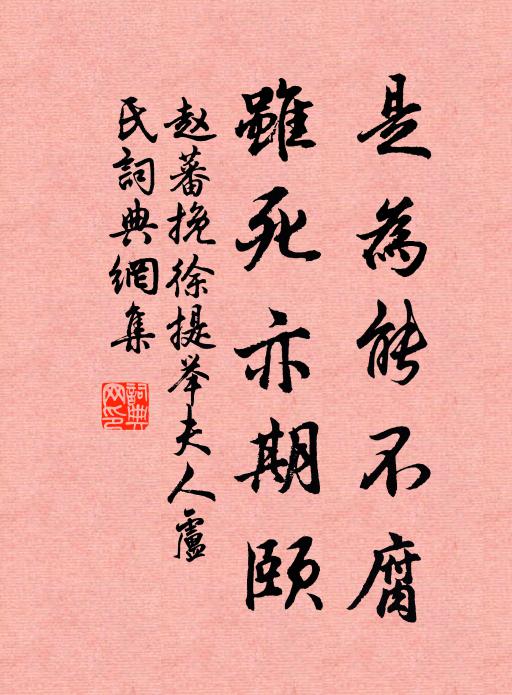 是為能不腐
雖死亦期頤
赵蕃挽徐提举夫人盧
氏詞典網集
詞典
网印